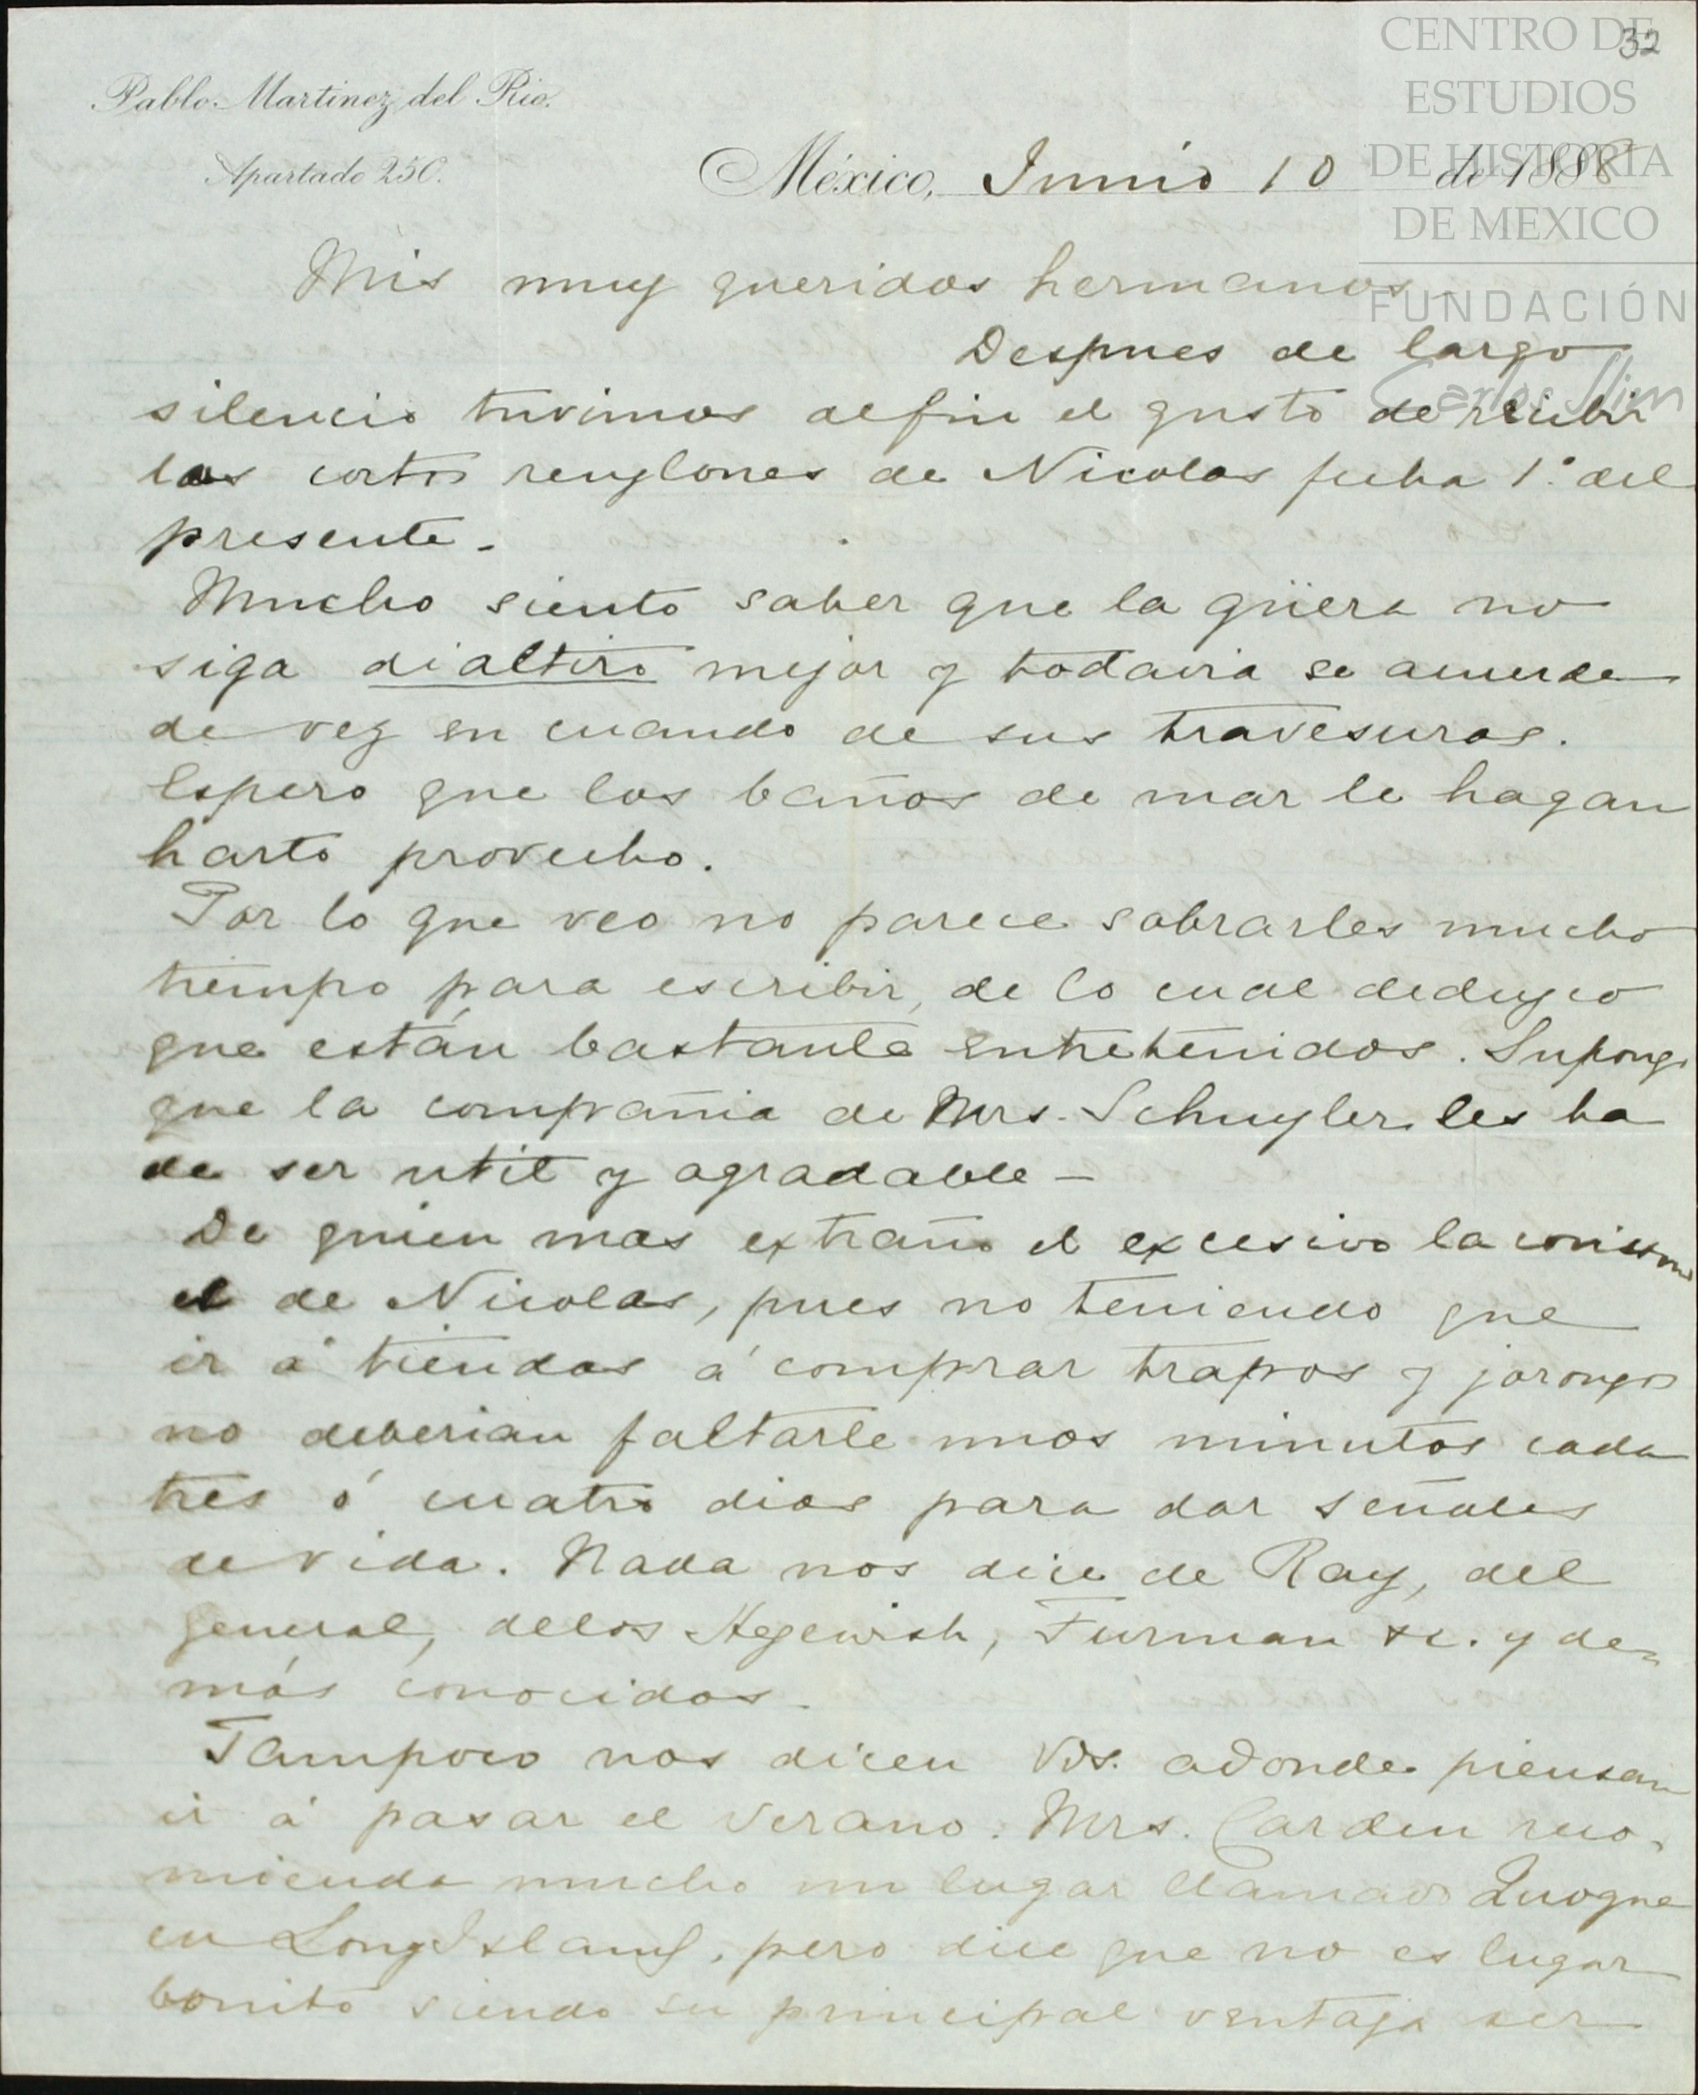 32
CENTRO DE
ESTUDIOS
DE HISTORIA
DE MEXICO
FUNDACIÓN
Carlos Slim
Pablo Martinez del Rio.
Apartado 250.
México, Junio 10 de 1888
Mis muy queridos hermanos
Despues de largo
silencio tuvimos alfin el gusto de recibir
los cortos renglones de Nicolas fecha 1º del
presente.
Mucho siento saber que la güera no
siga dialtiro mejor y todavia se acuerde
de vez en cuando de sus travesuras.
Espero que los baños de mar le hagan
harto provecho.
Por lo que veo no parece sobrarles mucho
tiempo para escribir, de lo cual deduzco
que están bastante entretenidos. Supongo
que la compañia de Mrs. Schuyler les ha
de ser util y agradable —
De quien mas extraño el excesivo laconismo
el de Nicolas, pues no teniendo que
ir á tiendas á comprar trapos y jorongos
no deberian faltarle unos minutos cada
tres ó cuatro dias para dar señales
de vida. Nada nos dice de Ray, del
general, delos Hegewish, Furman &c. y de-
más conocidos.
Tampoco nos dicen Vds. adonde piensan
ir á pasar el verano. Mrs. Carden reco-
mienda mucho un lugar llamado Quogue
en Long Island, pero dice que no es lugar
bonito siendo su principal ventaja ser